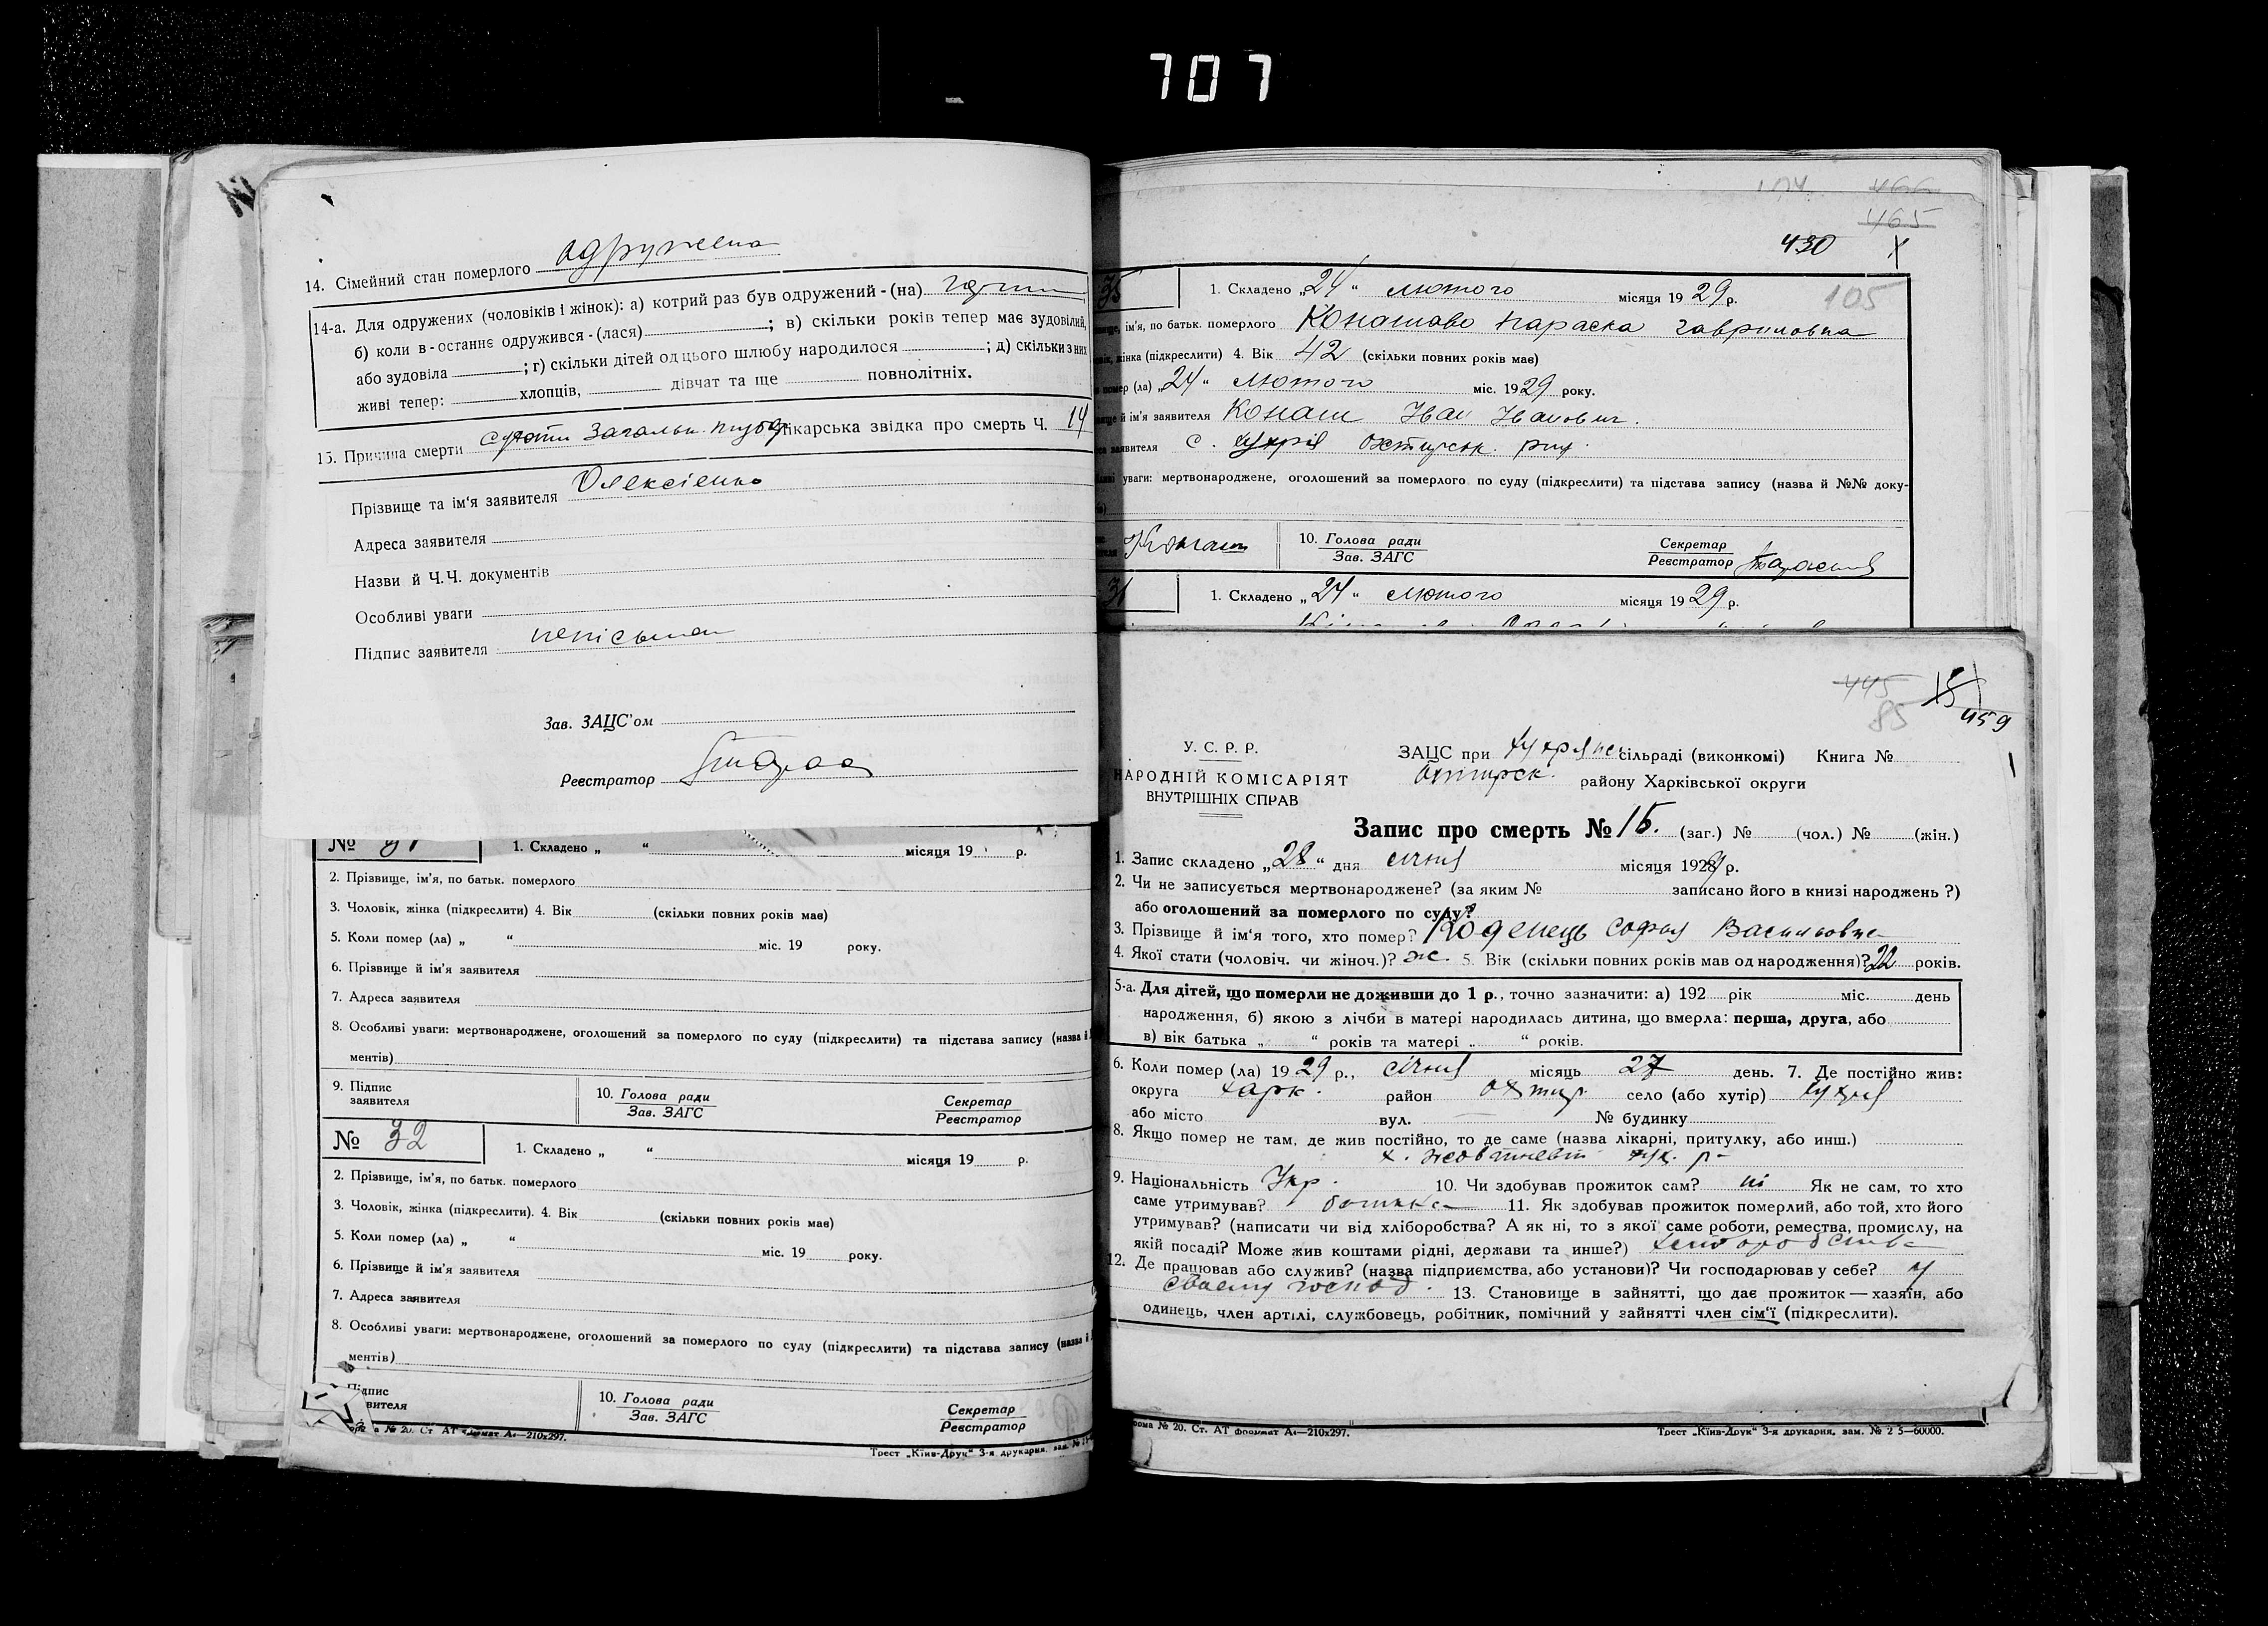 707
14. Сімейний стан померлого одружена
14-а. Для одружених (чоловіків і жінок): а) котрий раз був одружений - (на)
б) коли в-останнє одружився - (лася) ; в) скільки років тепер має зудовілий,
або зудовіла ; г) скільки дітей од цього шлюбу народилося ; д) скільки з них
живі тепер: хлопців, дівчат та ще повнолітніх.
15. Причина смерти лікарська звідка про смерть Ч. 14
Прізвище та ім'я заявителя Олексієнко
Адреса заявителя
Назви й Ч.Ч. документів
Особливі уваги
Підпис заявителя
Зав. ЗАЦС'ом
Реєстратор
№ 31 1. Складено „ “ місяця 19 р.
2. Прізвище, ім'я, по батьк. померлого
3. Чоловік, жінка (підкреслити) 4. Вік (скільки повних років має)
5. Коли помер (ла) „ “ міс. 19 року.
6. Прізвище й ім'я заявителя
7. Адреса заявителя
8. Особливі уваги: мертвонароджене, оголошений за померлого по суду (підкреслити) та підстава запису (назва й
ментів)
9. Підпис заявителя 10. Голова ради Зав. ЗАГС Секретар Реєстратор
№ 32 1. Складено „ “ місяця 19 р.
2. Прізвище, ім'я, по батьк. померлого
3. Чоловік, жінка (підкреслити). 4. Вік (скільки повних років має)
5. Коли помер (ла) „ “ міс. 19 року.
6. Прізвище й ім'я заявителя
7. Адреса заявителя
8. Особливі уваги: мертвонароджене, оголошений за померлого по суду (підкреслити) та підстава запису (назва й
ментів)
Підпис вителя 10. Голова ради Зав. ЗАГС Секретар Реєстратор
№ 20. Ст. АТ формат А4—210x297.
Трест „Київ-Друк“ 3-я друкарня, зам. №
466
465
430
105
35 1. Складено „24“ лютого місяця 1929 р.
ім'я, по батьк. померлого Конашова Параска Гавриловна
жінка (підкреслити) 4. Вік 42 (скільки повних років має)
помер (ла) „24“ лютого міс. 1929 року.
й ім'я заявителя Конаш Іван Іванович.
заявителя с. Охтирськ. рну.
уваги: мертвонароджене, оголошений за померлого по суду (підкреслити) та підстава запису (назва й №№ доку-
Конаш 10. Голова ради Зав. ЗАГС Секретар Реєстратор
31 1. Складено „24“ лютого місяця 1929 р.
445
85
459
У. С. Р. Р.
НАРОДНІЙ КОМІСАРІЯТ
ВНУТРІШНІХ СПРАВ
ЗАЦС при сільраді (виконкомі) Книга №
Охтирск. району Харківської округи
Запис про смерть № 15. (заг.) № (чол.) № (жін.)
1. Запис складено „28“ дня січня місяця 1929 р.
2. Чи не записується мертвонароджене? (за яким № записано його в книзі народжень?)
або оголошений за померлого по суду?
3. Прізвище й ім'я того, хто помер? Коденець Софья Васильовна
4. Якої стати (чоловіч. чи жіноч.)? ж. 5. Вік (скільки повних років мав од народження)? 22 років.
5-а. Для дітей, що померли не доживши до 1 р., точно зазначити: а) 192 рік міс. день
народження, б) якою з лічби в матері народилась дитина, що вмерла: перша, друга, або
в) вік батька „ “ років та матері „ “ років.
6. Коли помер (ла) 1929 р., січня місяць 27 день. 7. Де постійно жив:
округа Харк. район Охтир. село (або хутір)
або місто вул. — № будинку
8. Якщо помер не там, де жив постійно, то де саме (назва лікарні, притулку, або инш.)
9. Національність Укр. 10. Чи здобував прожиток сам? ні Як не сам, то хто
саме утримував? 11. Як здобував прожиток померлий, або той, хто його
утримував? (написати чи від хліборобства? А як ні, то з якої саме роботи, ремества, промислу, на
якій посаді? Може жив коштами рідні, держави та инше?) хліборобства
12. Де працював або служив? (назва підприємства, або установи)? Чи господарював у себе? у
своему господ. 13. Становище в зайнятті, що дає прожиток — хазяїн, або
одинець, член артілі, службовець, робітник, помічний у зайнятті член сім'ї (підкреслити).
№ 20. Ст. АТ формат А4—210x297.
Трест „Київ-Друк“ 3-я друкарня, зам. № 2 5—60000.